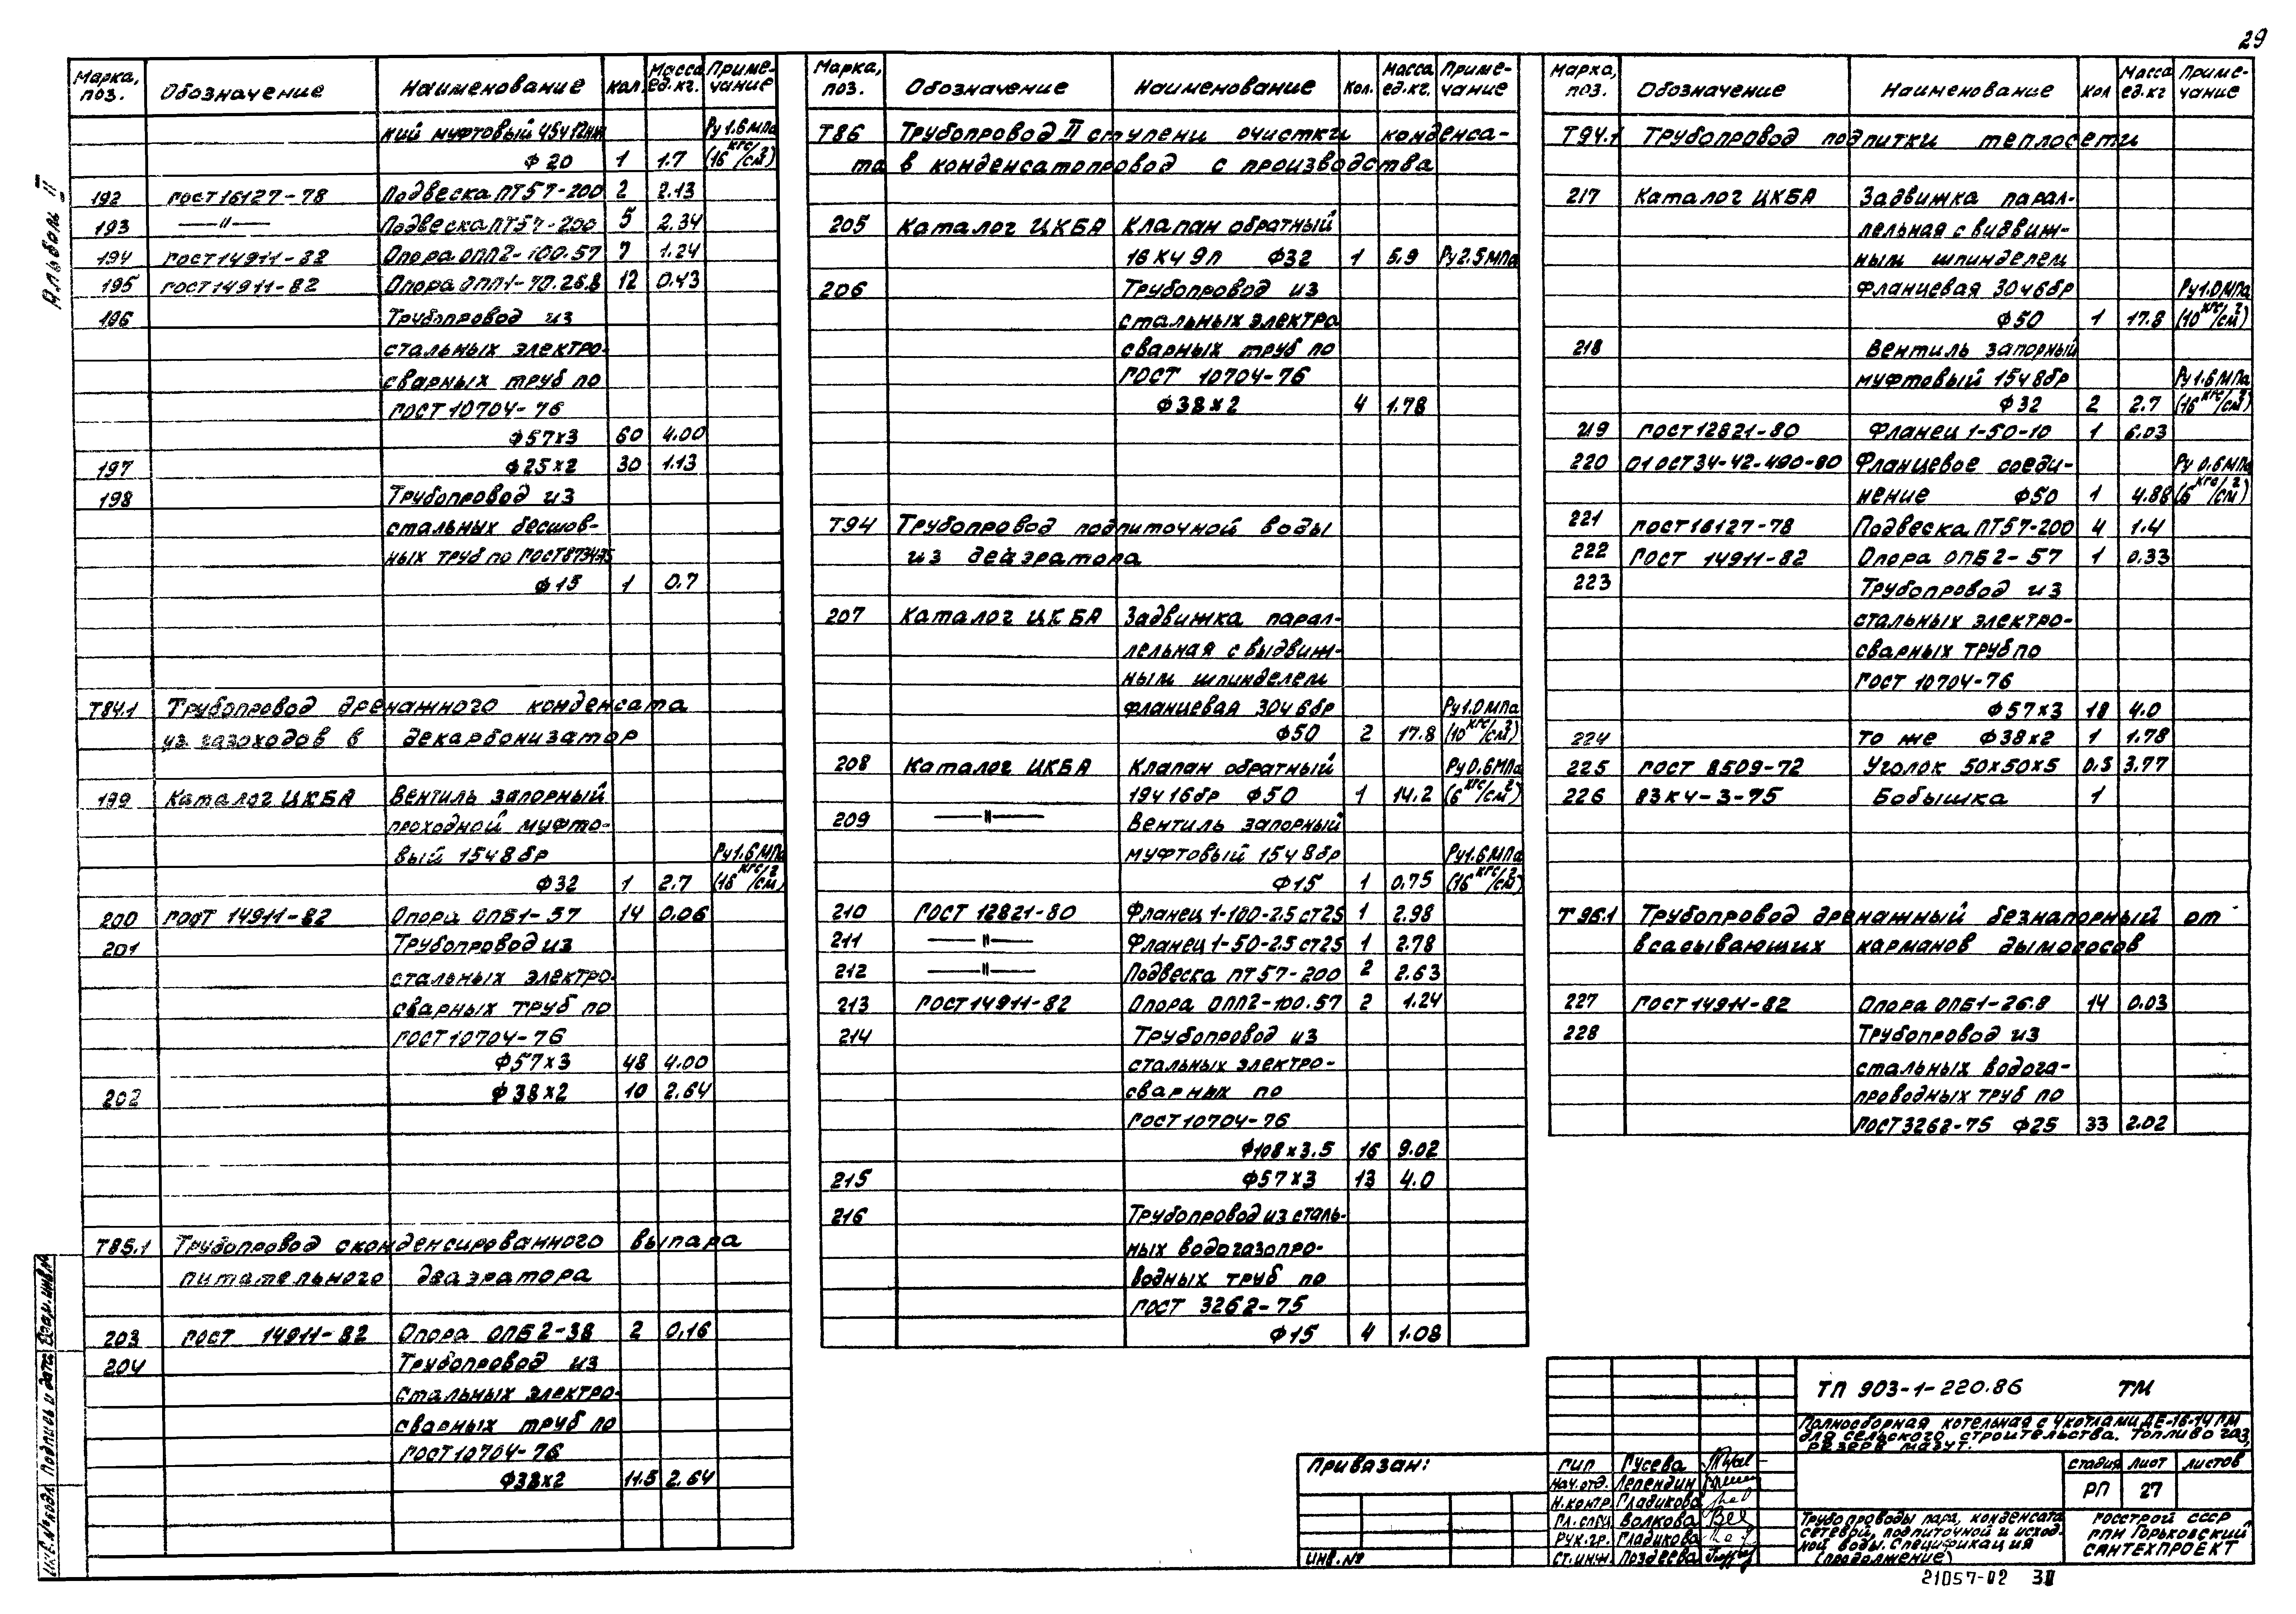 29
Альбом II
Марка, поз. Обозначение Наименование Кол. Масса ед.кг. Примечание
ний муфтовый 45ч12нж Ру1.6мпа
Ф20 1 1.7 (16 кгс/см²)
192 ГОСТ16127-78 Подвеска ПТ57-200 2 2.13
193 —"— Подвеска ПТ57-200 5 2.34
194 ГОСТ14911-82 Опора ОПП2-100.57 7 1.24
195 ГОСТ14911-82 Опора ОПП1-70.26.8 12 0.43
196 Трубопровод из
стальных электро-
сварных труб по
ГОСТ10704-76
Ф57х3 60 4.00
197 Ф25х2 30 1.13
198 Трубопровод из
стальных бесшов-
ных труб по ГОСТ8734-75
Ф15 1 0.7
Т84.1 Трубопровод дренажного конденсата
из газоходов в декарбонизатор
199 Каталог ЦКБА Вентиль запорный
проходной муфто-
вый 15ч8бр Ру1.6МПа
Ф32 1 2.7 (16 кгс/см²)
200 ГОСТ 14911-82 Опора ОПБ1-57 14 0.06
201 Трубопровод из
стальных электро-
сварных труб по
ГОСТ10704-76
Ф57х3 48 4.00
202 Ф38х2 10 2.64
Т85.1 Трубопровод сконденсированного выпара
питательного деаэратора
203 ГОСТ 14911-82 Опора ОПБ2-38 2 0,16
204 Трубопровод из
стальных электро-
сварных труб по
ГОСТ10704-76
Ф38х2 11.5 2.64
Марка, поз. Обозначение Наименование Кол. Масса ед.кг. Примечание
Т86 Трубопровод II ступени очистки конденса-
та в конденсатопровод с производства
205 Каталог ЦКБА Клапан обратный
16кч9п Ф32 1 5.9 Ру2.5мпа
206 Трубопровод из
стальных электро
сварных труб по
ГОСТ 10704-76
Ф38х2 4 1.78
Т94 Трубопровод подпиточной воды
из деаэратора
207 Каталог ЦКБА Задвижка парал-
лельная с выдвиж-
ным шпинделем
фланцевая 30ч6бр Ру1.0мпа
Ф50 2 17.8 (10 кгс/см²)
208 Каталог ЦКБА Клапан обратный Ру0.6МПа
19ч16бр Ф50 1 14.2 (6 кгс/см²)
209 —"— Вентиль запорный
муфтовый 15ч8бр Ру1.6МПа
Ф15 1 0.75 (16 кгс/см²)
210 ГОСТ 12821-80 Фланец 1-100-2.5 ст25 1 2.98
211 —"— Фланец 1-50-2.5 ст25 1 2.78
212 —"— Подвеска ПТ57-200 2 2.63
213 ГОСТ14911-82 Опора ОПП2-100.57 2 1.24
214 Трубопровод из
стальных электро-
сварных по
ГОСТ10704-76
Ф108х3.5 16 9.02
215 Ф57х3 13 4.0
216 Трубопровод из сталь-
ных водогазопро-
водных труб по
ГОСТ 3262-75
Ф15 4 1.08
Марка, поз. Обозначение Наименование Кол Масса ед.кг Примечание
Т94.1 Трубопровод подпитки теплосети
217 Каталог ЦКБА Задвижка парал-
лельная с видвиж-
ным шпинделем
фланцевая 30ч6бр Ру1.0МПа
Ф50 1 17.8 (10 кгс/см²)
218 Вентиль запорный
муфтовый 15ч8бр Ру1.6МПа
Ф32 2 2.7 (16 кгс/см²)
219 ГОСТ12821-80 Фланец 1-50-10 1 6.03
220 01 ОСТ34-42-490-80 Фланцевое соеди- Ру 0.6МПа
нение Ф50 1 4.88 (6 кгс/см²)
221 ГОСТ16127-78 Подвеска ПТ57-200 4 1.4
222 ГОСТ 14911-82 Опора ОПБ2-57 1 0.33
223 Трубопровод из
стальных электро-
сварных труб по
ГОСТ 10704-76
Ф57х3 18 4.0
224 то же Ф38х2 1 1.78
225 ГОСТ 8509-72 Уголок 50х50х5 0.5 3.77
226 83К4-3-75 Бобышка 1
Т96.1 Трубопровод дренажный безнапорный от
всасывающих карманов дымососов
227 ГОСТ14911-82 Опора ОПБ1-26.8 14 0.03
228 Трубопровод из
стальных водога-
проводных труб по
ГОСТ3262-75 Ф25 33 2.02
ТП 903-1-220.86 ТМ
Полносборная котельная с 4 котлами ДЕ-16-14ГМ
для сельского строительства. Топливо газ,
резерв мазут.
Привязан:
ИНВ.№
ГИП Гусева
Нач.отд. Лепендин
Н.контр. Гладикова
Гл.спец Волкова
Рук.гр. Гладикова
Ст.инж. Поздеева
стадия лист листов
РП 27
Трубопроводы пара, конденсата
сетевой, подпиточной и исход-
ной воды. Спецификация
(продолжение)
Госстрой СССР
ГПИ Горьковский
САНТЕХПРОЕКТ
21057-02
Инв.№подл. Подпись и дата Взам.инв.№